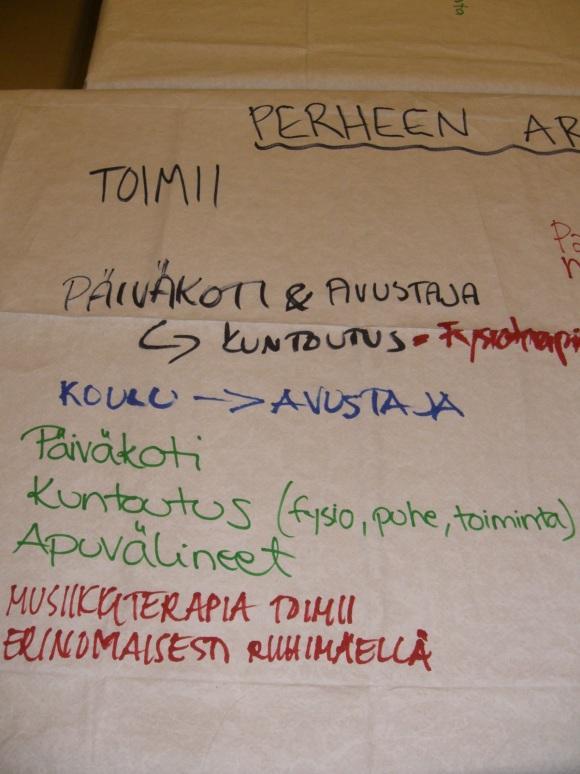 PERHEEN AR
TOIMII
PÄIVÄKOTI & AVUSTAJA
↪ KUNTOUTUS = Fysioterapi
KOULU → AVUSTAJA
Päiväkoti
Kuntoutus (fysio, puhe, toiminta)
Apuvälineet
MUSIIKKITERAPIA TOIMII
ERINOMAISESTI RIIHIMÄELLÄ